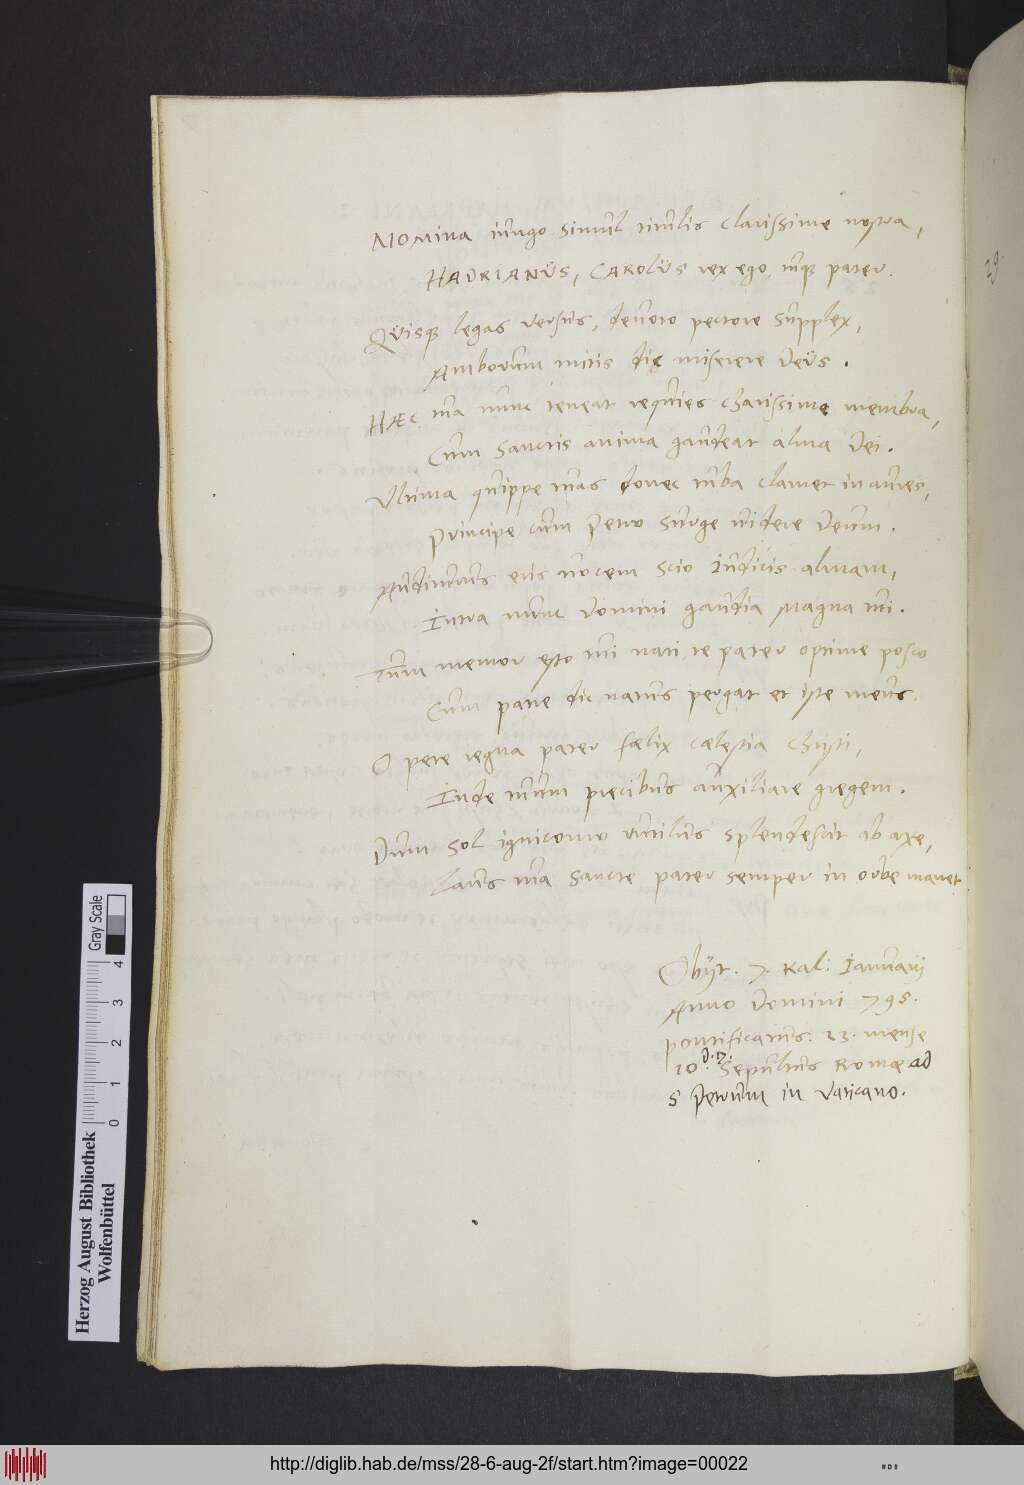 NOMina iungo simul titulis clarissime nostra,
HADRIANUS, CAROLUS rex ego, tuq; pater.
QUisq; legas versus, devoto pectore supplex,
Amborum mitis dic miserere Deus.
HÆC tua nunc teneat requies charissime membra,
Cum sanctis anima gaudeat alma Dei.
Ultima quippe tuas donec tuba clamet in aures,
Principe cum Petro surge videre Deum.
Auditurus eris vocem scio Iudicis almam,
Intra nunc Domini gaudia magna tui.
Tum memor esto tui nati, te pater optime posco
Cum patre dic natus pergat et iste meus.
O pete regna pater fælix cælestia Christi,
Inde tuum precibus auxiliare gregem.
Dum sol ignicomo rutilus splendescit ab axe,
Laus tua sancte pater semper in orbe manet.
Obijt. 7. Kal: Ianuarij
Anno Domini 795.
pontificatus. 23. mense
10 D. 17. Sepultus Romæ ad
S Petrum in Vaticano.
29.
Gray Scale
0 1 2 3 4
Herzog August Bibliothek
Wolfenbüttel
http://diglib.hab.de/mss/28-6-aug-2f/start.htm?image=00022